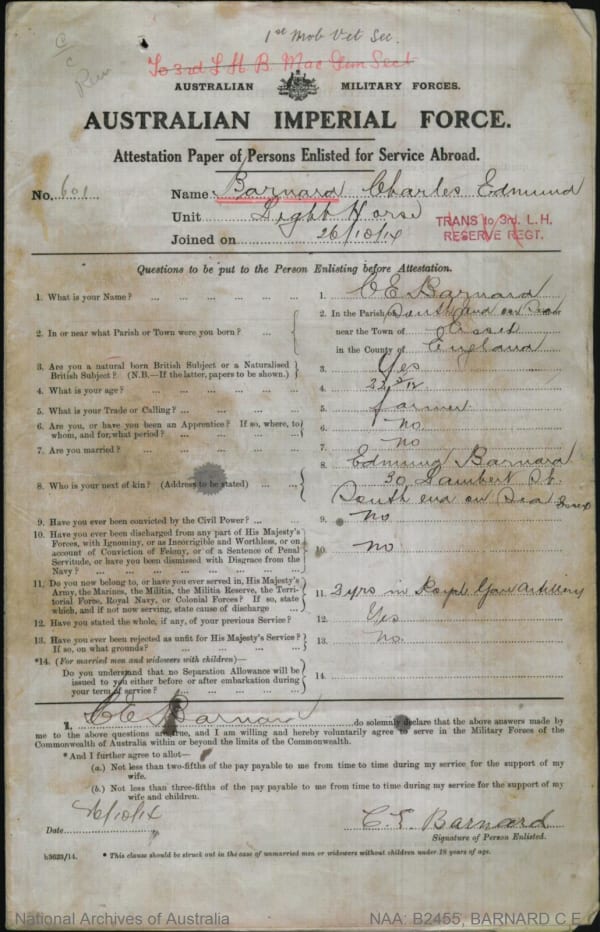 1st Mob Vet Sec.
To 3rd L H B. Mac Gun Sect
AUSTRALIAN MILITARY FORCES.
AUSTRALIAN IMPERIAL FORCE.
Attestation Paper of Persons Enlisted for Service Abroad.
No. 601 Name Barnard Charles Edmund
Unit Light Horse
TRANS to 3rd. L.H. RESERVE REGT.
Joined on 26/10/14
Questions to be put to the Person Enlisting before Attestation.
1. What is your Name? ... 1. C E Barnard
2. In or near what Parish or Town were you born? ... 2. In the Parish of South end on Sea
near the Town of Essex
in the County of England
3. Are you a natural born British Subject or a Naturalised
British Subject? (N.B.—If the latter, papers to be shown.) 3. Yes
4. What is your age? ... 4. 22
5. What is your Trade or Calling? ... 5. farmer
6. Are you, or have you been an Apprentice? If so, where, to
whom, and for what period? ... 6. no
7. Are you married? ... 7. no
8. Who is your next of kin? (Address to be stated) ... 8. Edmund Barnard
30 Lambert St.
South end on Sea Essex
9. Have you ever been convicted by the Civil Power? ... 9. no
10. Have you ever been discharged from any part of His Majesty's
Forces, with Ignominy, or as Incorrigible and Worthless, or on
account of Conviction of Felony, or of a Sentence of Penal
Servitude, or have you been Dismissed with Disgrace from the
Navy? ... 10. no
11. Do you now belong to, or have you ever served in, His Majesty's
Army, the Marines, the Militia, the Militia Reserve, the Terri-
torial Force, Royal Navy, or Colonial Forces? If so, state
which, and if not now serving, state cause of discharge ... 11. 3 yrs in Royal Garr Artillery
12. Have you stated the whole, if any, of your previous Service? 12. Yes
13. Have you ever been rejected as unfit for His Majesty's Service?
If so, on what grounds? ... 13. no
*14. (For married men and widowers with children)—
Do you understand that no Separation Allowance will be
issued to you either before or after embarkation during
your term of service? ... 14.
I, C E Barnard do solemnly declare that the above answers made by
me to the above questions are true, and I am willing and hereby voluntarily agree to serve in the Military Forces of the
Commonwealth of Australia within or beyond the limits of the Commonwealth.
* And I further agree to allot—
(a.) Not less than two-fifths of the pay payable to me from time to time during my service for the support of my
wife.
(b.) Not less than three-fifths of the pay payable to me from time to time during my service for the support of my
wife and children.
Date 26/10/14 C. E. Barnard
Signature of Person Enlisted.
* This clause should be struck out in the case of unmarried men or widowers without children under 18 years of age.
National Archives of Australia NAA: B2455, BARNARD C E